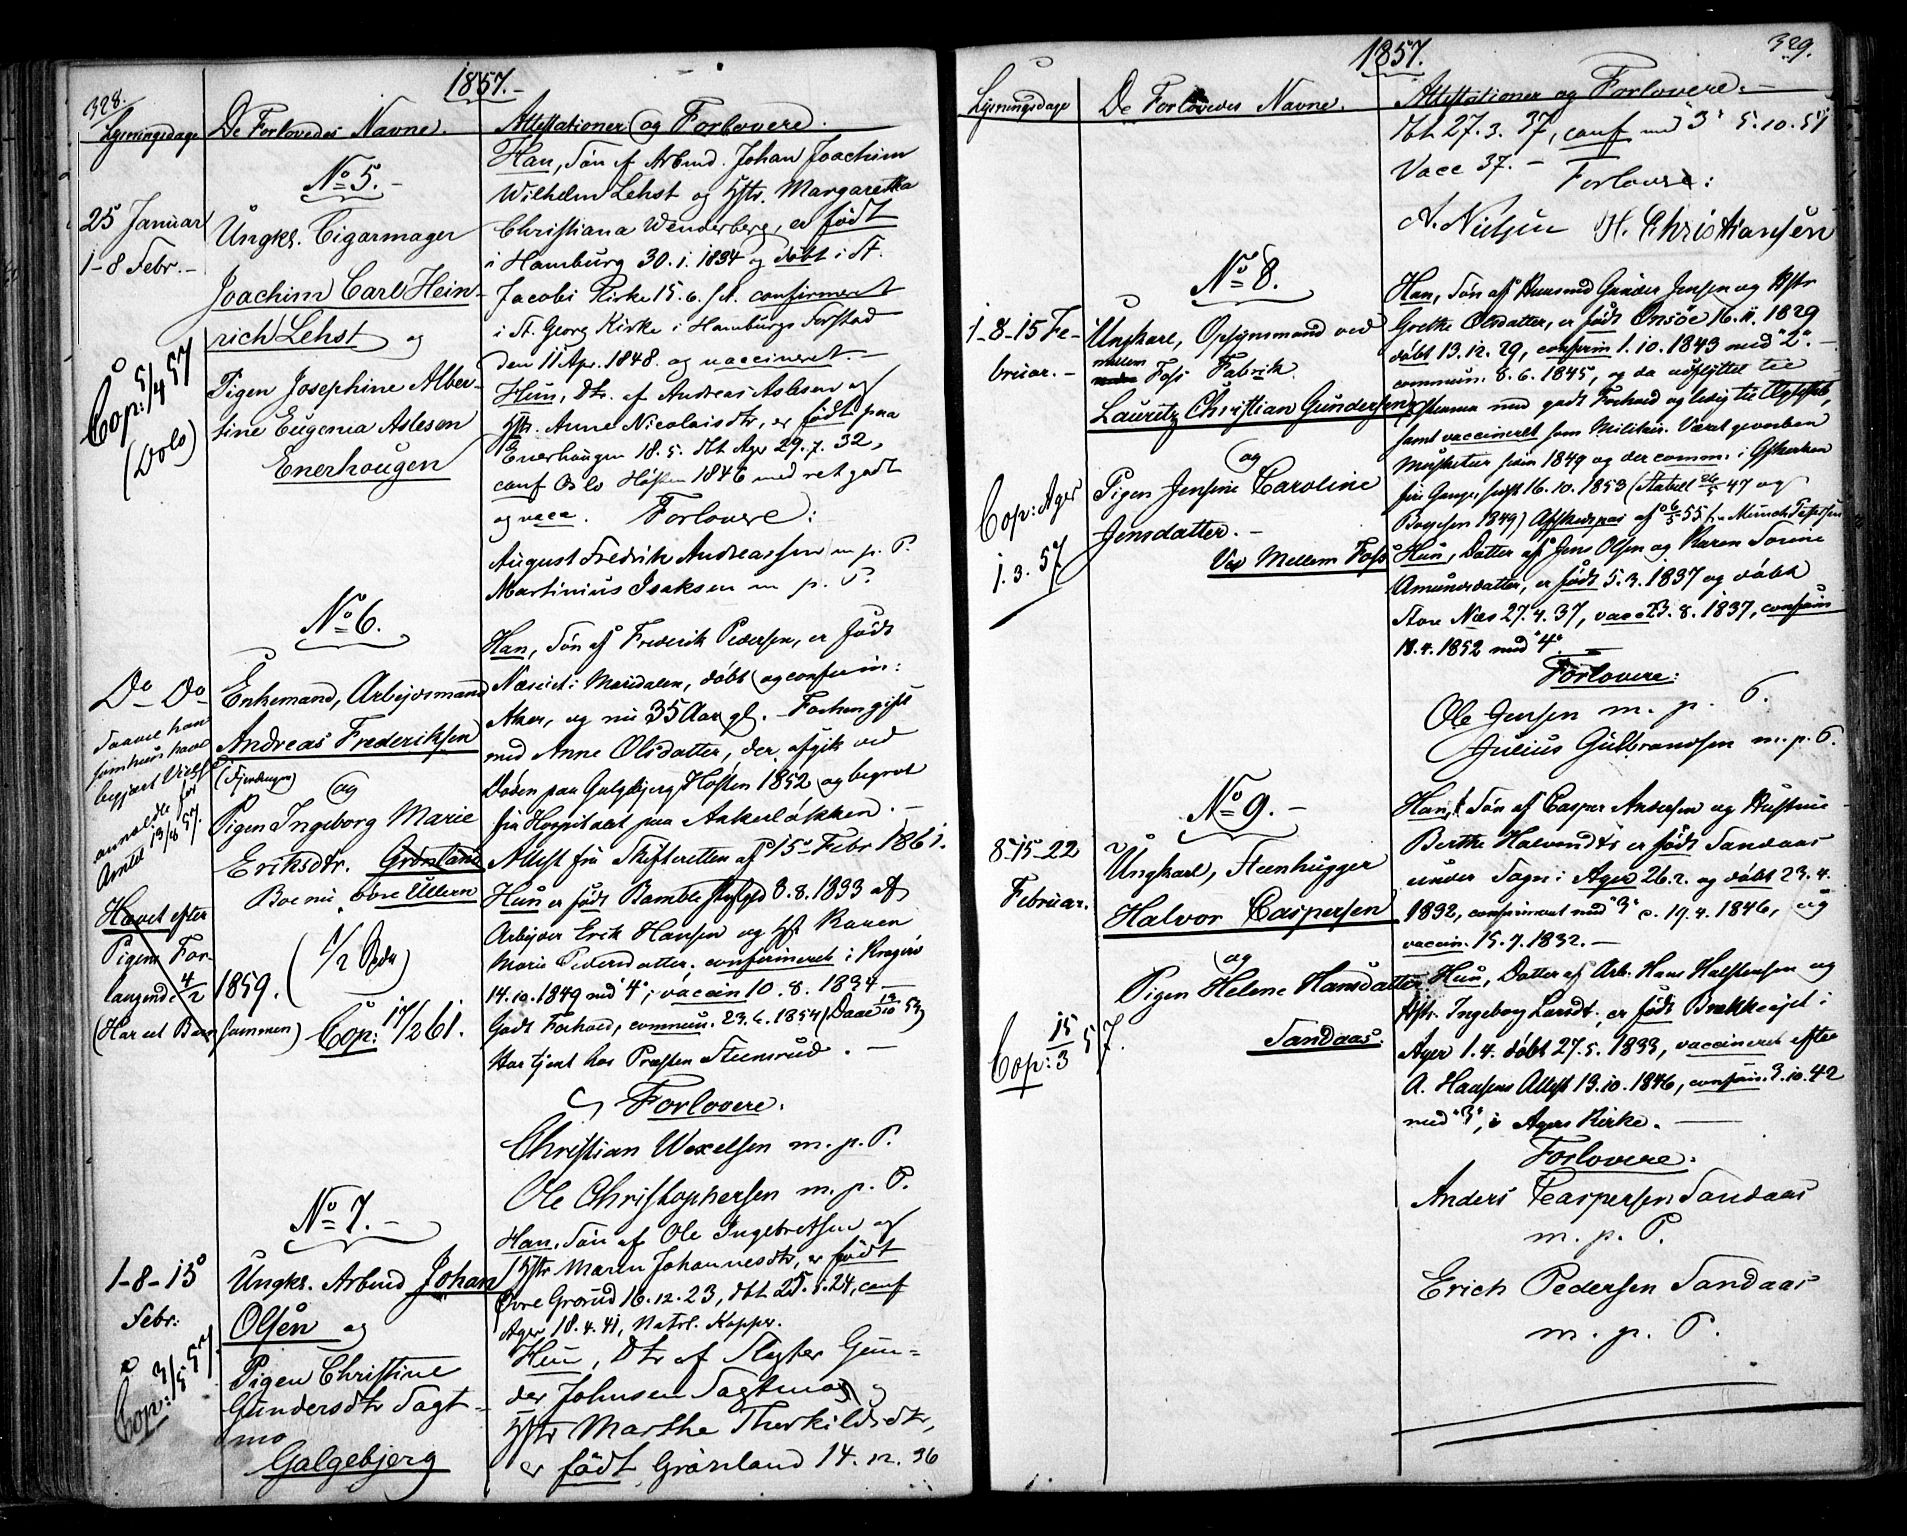 328.
1857.
Lysningsdage
De Forlovedes Navne.
Attestationer og Forlovere.
No 5.
25 Januar
1-8 Febr.
Cop: 5/4 57
(Oslo)
Ungkr. Cigarmager
Joachim Carl Hein-
rich Lehst og
Pigen Josephine Alber-
tine Eugenia Aslesen
Enerhougen
Han, Søn af Arbmd. Johan Joachim
Wilhelm Lehst og Hstr. Margaretha
Christiana Wenderberg, er født
i Hamburg 30.1.1834 og døbt i St.
Jacobi Kirke 15.6. confirmeret
i St. Georg Kirke i Hamburgs Forstad
den 11 Apr. 1848. og vaccineret.
Hun, Dtr. af Andreas Aslesen og
Hstr. Anne Nicolaisdtr, er født paa
Enerhaugen 18.5. dbt Ager 29.7.32,
conf Oslo Høsten 1846 med ret godt
og vacc. Forlovere:
August Fredrik Andreassen m. p. P.
Martinius Isaksen m. p. P.
No 6.
Do Do
Samme han
begjært Vielse
anmeldt for
Enkemand, Arbejdsmand
Andreas Frederiksen
(Fjerdingen)
og
Pigen Ingeborg Marie
Eriksdtr. Grønland
Boe nu øvre Ullern
Hævet efter
Pigens For-
langende 4/2 1859.
(Har eet Barn sammen)
Cop: 17/2 61.
Han, Søn af Frederik Pedersen, er født
Næset i Maridalen, døbt og confirm:
Aker, og nu 35 Aar gl. - Forhen gift
med Anne Olsdatter, der afgik ved
Døden paa Galgebjerg Høsten 1852 og begrot
fra Hospitalet paa Ankerløkken. -
Attest fra Skifteretten af 15 Febr 1861.
Hun er født Bamble Prstgjd 8.8.1833 af
Arbejder Erik Hansen og Hst Karen
Marie Pedersdatter, confirmeret i Kragerø
14.10.1849 med "4", vaccin 10.8.1834
Godt Forhold, commun. 23.6.1854 (Daae 19/10 53)
Har tjent hos Præsten Steensrud. -
Forlovere.
Christian Wexelsen m. p. P.
Ole Christophersen m. p. P.
No 7. -
1-8-15
Febr:
Cop: 3/5 57
Ungkr. Arbmd Johan
Olsen og
Pigen Christine
Gundersdtr Sagt-
mo
Galgebjerg
Han, Søn af Ole Ingebretsen og
Hstr Maren Johannesdtr, er født
Øvre Grorud 16.12.23, dbt 25.1.24, conf
Ager 18.4.41, Natrl. Kopper.
Hun, Dtr af Slagter Gun-
der Johnsen Sagtmo og
Hstr Marthe Therkildsdtr,
er født Grønland 14.12.36
329.
1857.
Lysningsdage
De Forlovedes Navne.
Attestationer og Forlovere. -
dbt 27.3.37, conf med "3" 5.10.51
Vacc 37. - Forlovere:
N. Nielsen H. Christiansen
No 8.
1-8-15 Fe-
bruar. -
Cop: Ager
1.3.57
Ungkarl, Opsynsmand ved
mellem
Foss Fabrik
Lauritz Christian Gundersen
og
Pigen Jensine Caroline
Jensdatter. -
Ved Mellem Foss
Han, Søn af Huusmd Gunder Jensen og Hstr
Grethe Olsdatter, er født Onsøe 16.11.1829
døbt 13.12.29, confirm 1.10.1843 med "2". -
commun. 8.6.1845, og da udflyttet til
med godt Forhold og ledig til Ægteskab,
samt vaccineret som Militair. Været gevorben
Musketeer siden 1849 og der comm. i Gskirken
16.10.1853 (Stabell 26/5 47 og
Boyesen 1849) Afskedspas af 6/5 55 fra Munch Petersen
Hun, Datter af Jens Olsen og Karen Sorene
Amundsdatter, er født 5.3.1837 og døbt
Store Næs 27.4.37, vacc 23.8.1837, confirm
18.4.1852 med "4". -
Forlovere:
Ole Jensen m. p. P.
Julius Gulbrandsen m. p. P.
No 9. -
8-15-22
Februar.
Cop: 15/3 57.
Ungkarl, Steenhugger
Halvor Caspersen
og
Pigen Helene Hansdatter
Sandaas.
Han, Søn af Casper Andersen og Hustrue
Berthe Halvorsdtr er født Sandaas
under Sogn i Ager 26.2. og døbt 23.4.
1832, confirmeret med "3" c. 19.4.1846, og
vaccin. 15.7.1832. -
Hun, Datter af Arb. Hans Halstensen og
Hstr. Ingeborg Larsdt. er født Brekkeejet i
Ager 1.4. døbt 27.5.1833, vaccineret efter
A. Hansens Attest 13.10.1846, confirm. 2.10.42
med "3", i Agers Kirke. -
Forlovere.
Anders Caspersen Sandaas
m. p. P.
Erich Pedersen Sandaas
m. p. P.